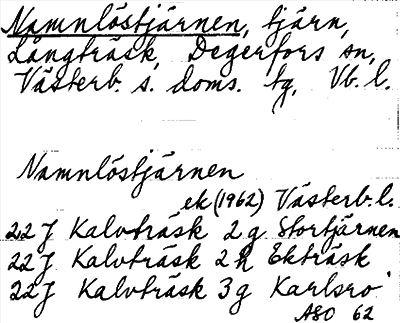 Namnlöstjärnen, tjärn,
Långträsk, Degerfors sn,
Västerb. s. doms. tg, Vb. l.
Namnlöstjärnen
ek (1962) Västerb. l.
22J Kalvträsk 2g Stortjärnen
22J Kalvträsk 2h Ekträsk
22J Kalvträsk 3g Karlsro
ASO 62